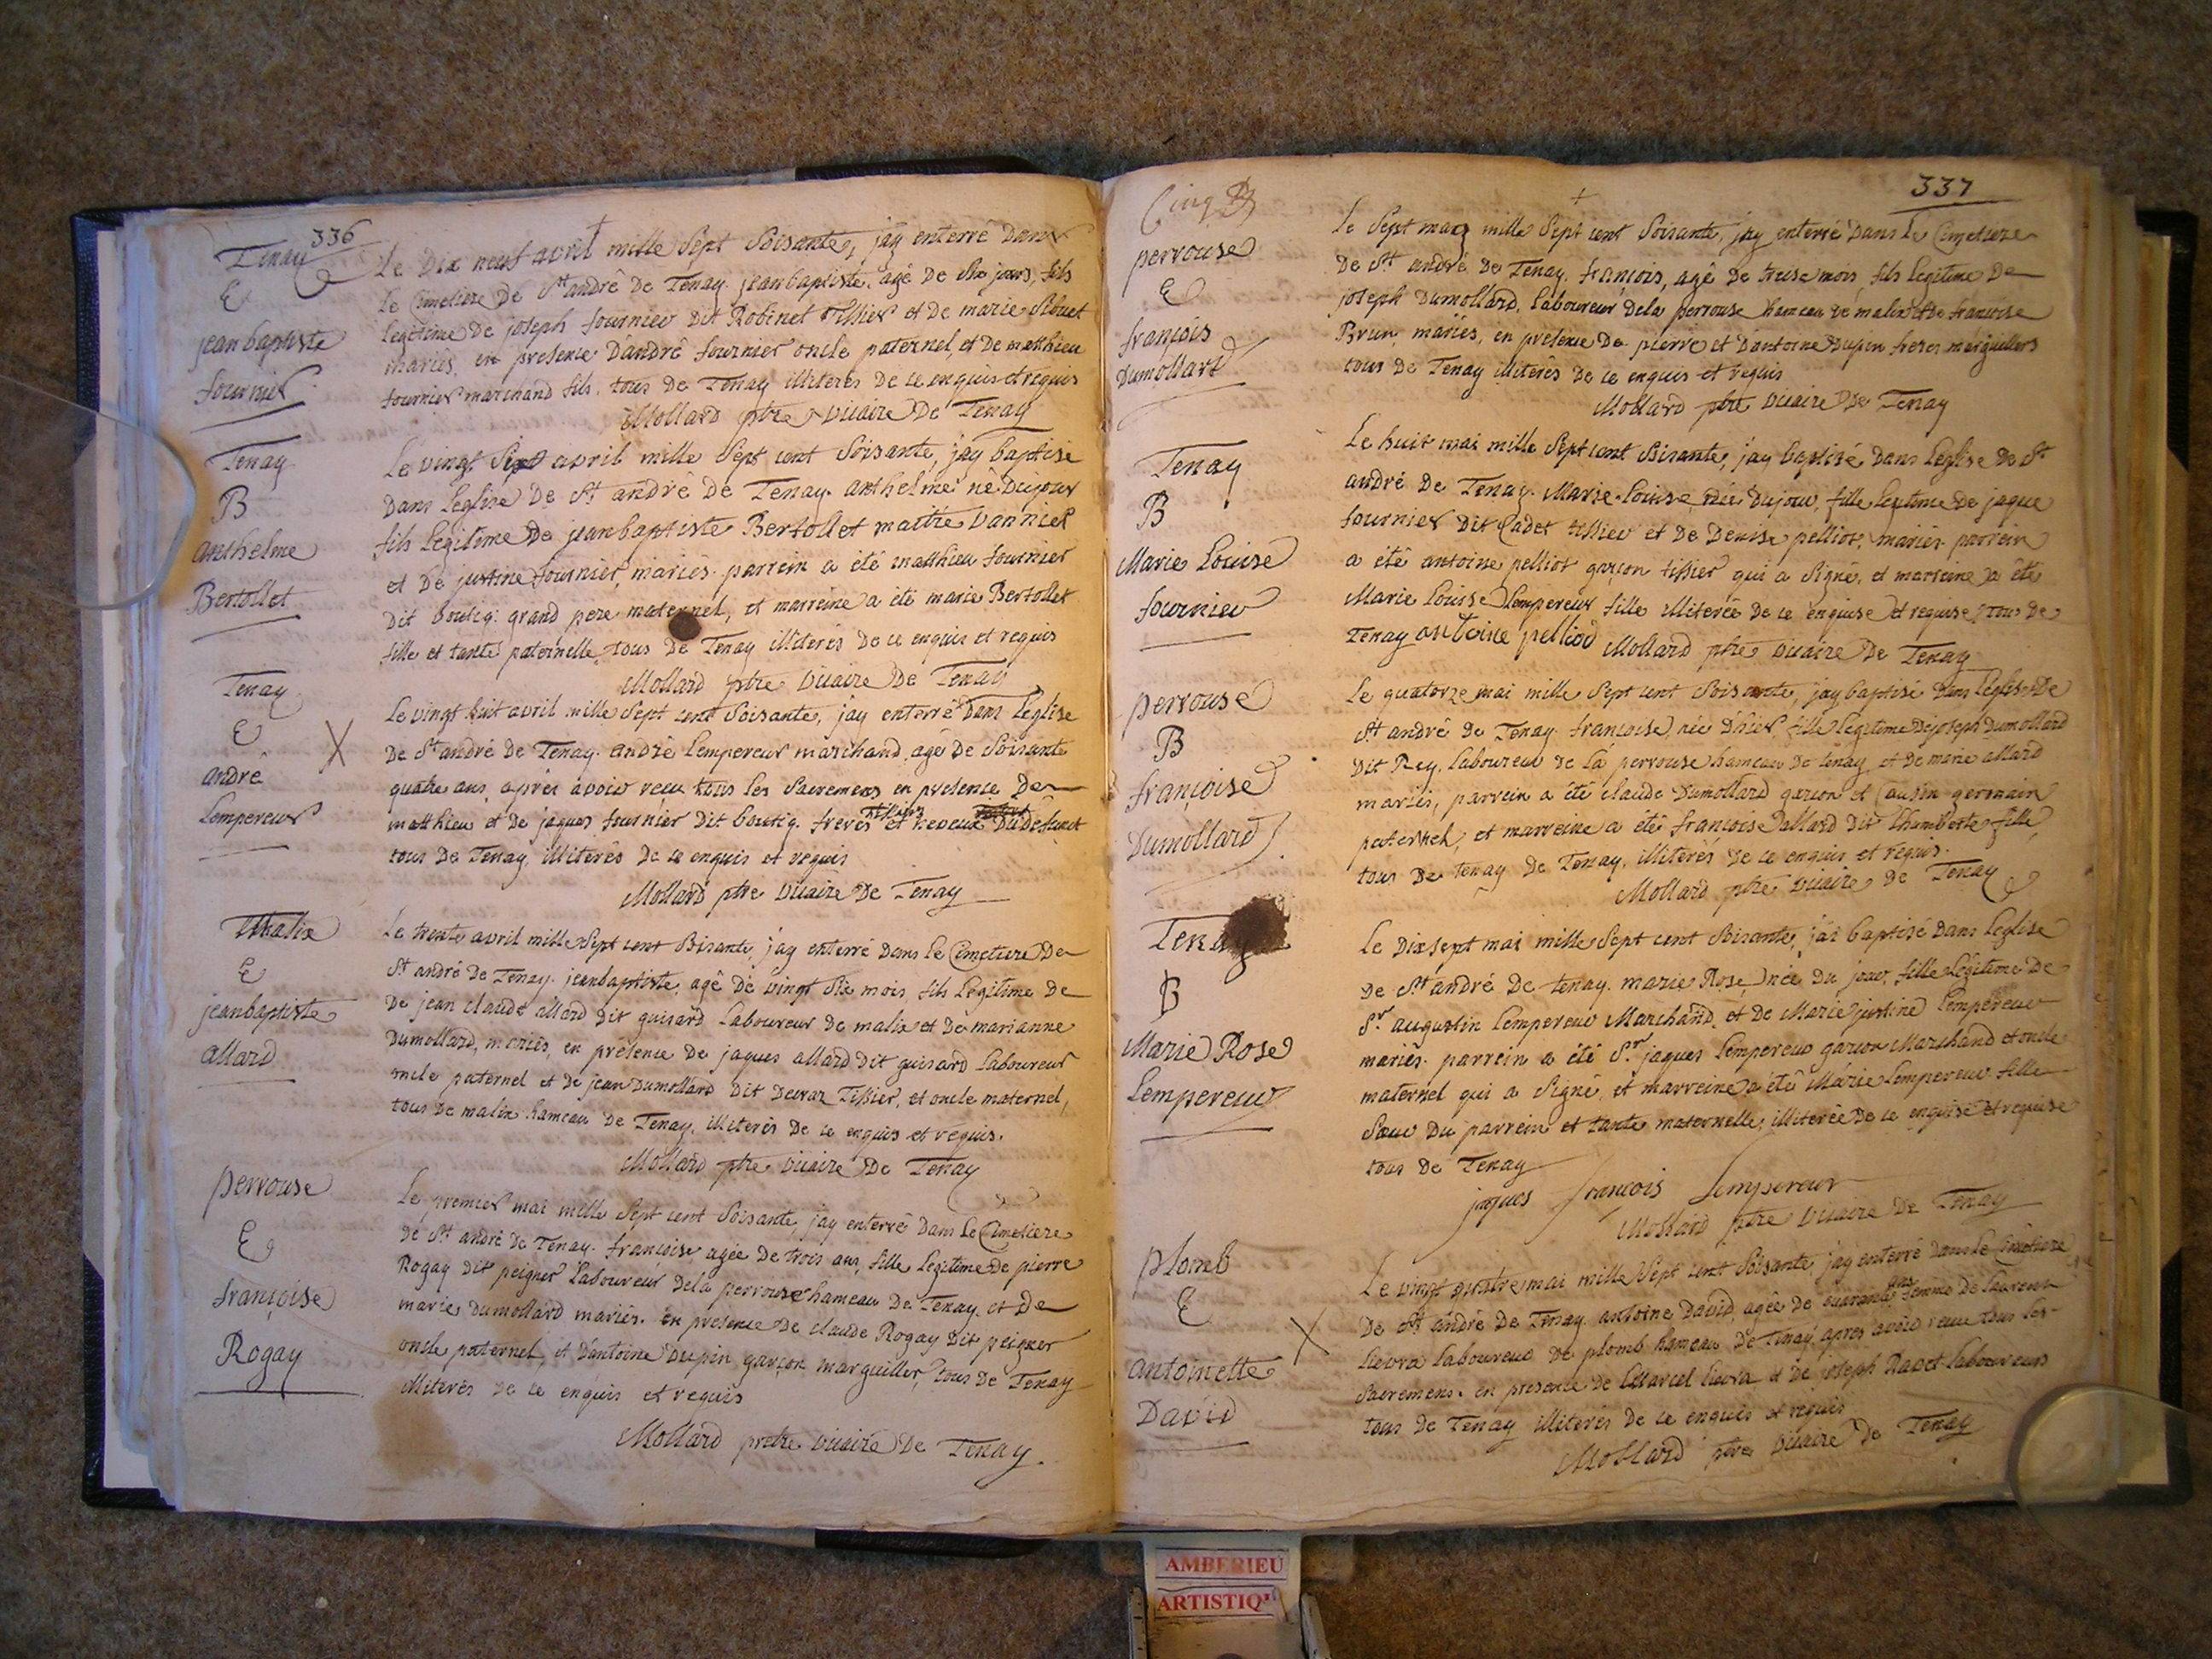 336
Tenay
E
jean baptiste
fournier
Le Dix neuf avril mille Sept Soisante, jäy enterré Dans
Le Cimetiere De St andré De Tenay. jeanbaptiste, agé De Six jours, fils
legitime De joseph fournier Dit Robinet tissier et de marie
mariés, en presence D'andré fournier oncle paternel, et De matthieu
fournier marchand fils. tous De Tenay illiterés De ce enquis et requis
Mollard ptre vicaire De Tenay
Tenay
B
anthelme
Bertollet
Le vingt Sept avril mille Sept cent Soisante, jay baptisé
Dans Leglise De St andré De Tenay. anthelme né Dujour
fils Legitime De jeanbaptiste Bertollet maitre Vannier
et De justine fournier, mariés. parrein a été matthieu fournier
Dit boutiq. grand pere maternel, et marreine a été marie Bertollet
fille et tante paternelle, tous De Tenay illiterés De ce enquis et requis
Mollard ptre vicaire De Tenay
Tenay
E
andré
Lempereur
Le vingt huit avril mille Sept cent Soisante, jay enterré Dans Leglise
De St andré De Tenay. andré Lempereur marchand, agé De Soisante
quatre ans, après avoir receu tous les Sacremens en presence De
matthieu et De jaques fournier Dit boutiq. freres tissiers et neveux Du Defunt
tous De Tenay, illiterés De ce enquis et requis
Mollard ptre vicaire De Tenay
Malix
E
jeanbaptiste
allard
Le trente avril mille Sept cent Soisante, jay enterré Dans le Cimetiere De
St andré De Tenay. jeanbaptiste, agé De vingt Six mois, fils Legitime De
De jean claude allard Dit guisard Laboureur De malix et De marianne
Dumollard, mariés, en présence De jaques allard Dit guisard Laboureur
oncle paternel et De jean Dumollard Dit Tissier, et oncle maternel,
tous De malix hameau De Tenay, illiterés De ce enquis et requis.
Mollard ptre vicaire De Tenay
perrouse
E
françoise
Rogay
Le premier mai mille Sept cent Soisante, jay enterré Dans Le Cimetiere
De St andré De Tenay. françoise, agée De trois ans, fille Legitime De pierre
Rogay Dit peigner Laboureur Dela perrouse hameau De Tenay, et De
marie Dumollard mariés. en presence De claude Rogay Dit peigner
oncle paternel, et D'antoine Dupin garçon marguiller, tous De Tenay
illiterés De ce enquis et requis
Mollard pretre vicaire De Tenay.
337
Cinq
perrouse
E
françois
Dumollard
Le Sept mai mille Sept cent Soisante, jäy enterré Dans Le Cimetiere
De St andré De Tenay. françois, agé De treise mois fils Legitime De
joseph Dumollard, Laboureur Dela perrouse hameau De malix et De francoise
Brun, mariés, en présence De pierre et D'antoine Dupin freres marguillers
tous De Tenay illiterés De ce enquis et requis
Mollard ptre vicaire De Tenay
Tenay
B
Marie Louise
fournier
Le huit mai mille Sept cent Soisante, jay baptisé Dans Leglise De St
andré De Tenay. Marie-Louise, née Dujour, fille Legitime De jaque
fournier Dit Cadet tissier et De Denise pelliot, mariés. parrein
a été antoine pelliot garçon tissier qui a Signé, et marreine a été
Marie Louise Lempereur fille illiterée De ce enquise et requise, tous De
Tenay antoine pelliod Mollard ptre vicaire De Tenay
perrouse
B
françoise
Dumollard
Le quatorze mai mille Sept cent Soisante, jay baptisé Dans Leglise De
St andré De Tenay. francoise, née D'hier, fille Legitime De joseph Dumollard
Dit Rey, Laboureur De la perrouse hameau De tenay et De marie allard
mariés, parrein a été claude Dumollard garçon et Cousin germain
paternel, et marreine a été francoise allard Dit Lhumberte fille
tous De tenay De Tenay, illiterés De ce enquis et requis.
Mollard ptre vicaire De Tenay
Tenay
B
Marie Rose
Lempereur
Le Dixsept mai mille Sept cent Soisante, j'ai baptisé Dans Leglise
De St andré De tenay. marie Rose, née Du jour, fille Legitime De
Sr augustin Lempereur Marchand, et De Marie justine Lempereur
mariés. parrein a été Sr jaques Lempereur garçon Marchand et oncle
maternel qui a Signé, et marreine a été Marie Lempereur fille
Sœur Du parrein et tante maternelle, illiterée De ce enquise et requise
tous De Tenay
jaques francois Lempereur
Mollard ptre vicaire De Tenay
plomb
E
antoinette
David
Le vingt quatre mai mille Sept cent Soisante, jay enterré Dans Le Cimetiere
De St andré De Tenay. antoine David, agée De quarante ans femme De Laurent
Lievra Laboureur De plomb hameau De Tenay, apres avoir receu tous Les
Sacremens. en presence De Marcel Lievra et De joseph Ravet Laboureurs
tous De Tenay illiterés De ce enquis et requis
Mollard ptre vicaire De Tenay
AMBERIEU
ARTISTIQ